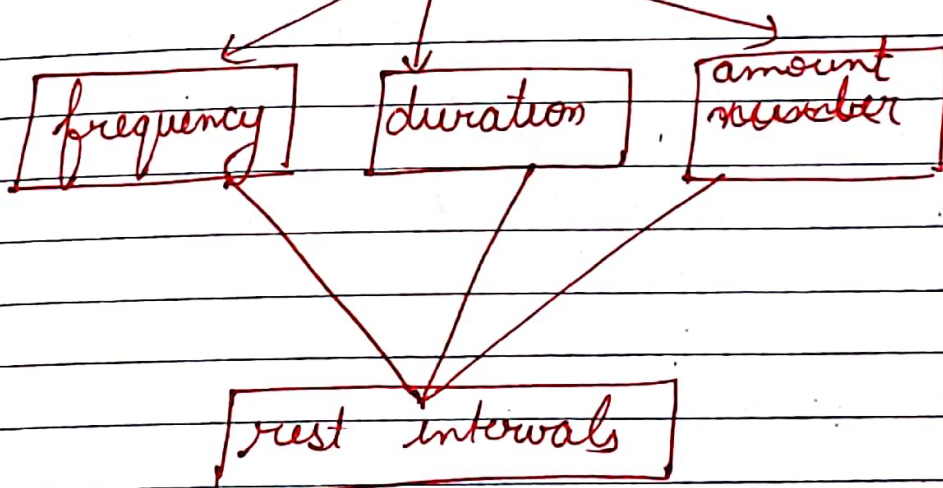 frequency
duration
amount
number
rest intervals